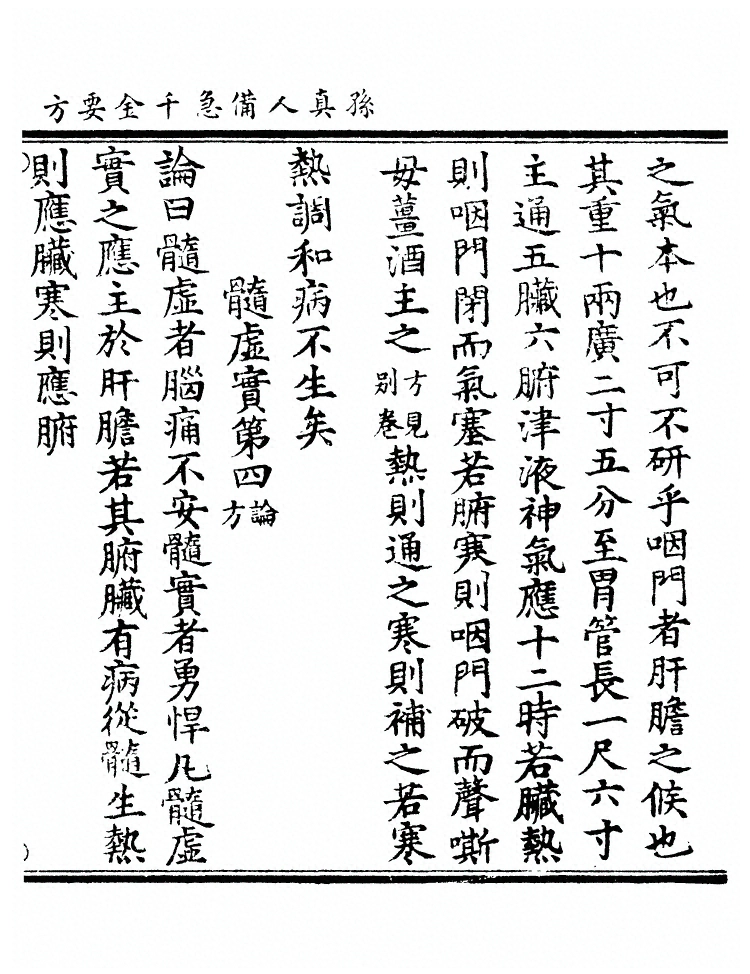 孫真人備急千金要方
之氣本也不可不研乎咽門者肝膽之候也
其重十兩廣二寸五分至胃管長一尺六寸
主通五臟六腑津液神氣應十二時若臟熱
則咽門閉而氣塞若腑寒則咽門破而聲嘶
毋薑酒主之方見別卷熱則通之寒則補之若寒
熱調和病不生矣
髓虛實第四論方
論曰髓虛者腦痛不安髓實者勇悍凡髓虛
實之應主於肝膽若其腑臟有病從髓生熱
則應臟寒則應腑